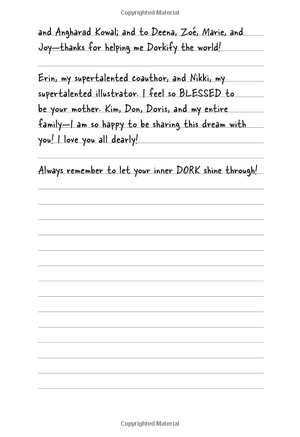 Copyrighted Material
and Angharad Kowal; and to Deena, Zoé, Marie, and
Joy—thanks for helping me Dorkify the world!
Erin, my supertalented coauthor, and Nikki, my
supertalented illustrator. I feel so BLESSED to
be your mother. Kim, Don, Doris, and my entire
family—I am so happy to be sharing this dream with
you! I love you all dearly!
Always remember to let your inner DORK shine through!
Copyrighted Material